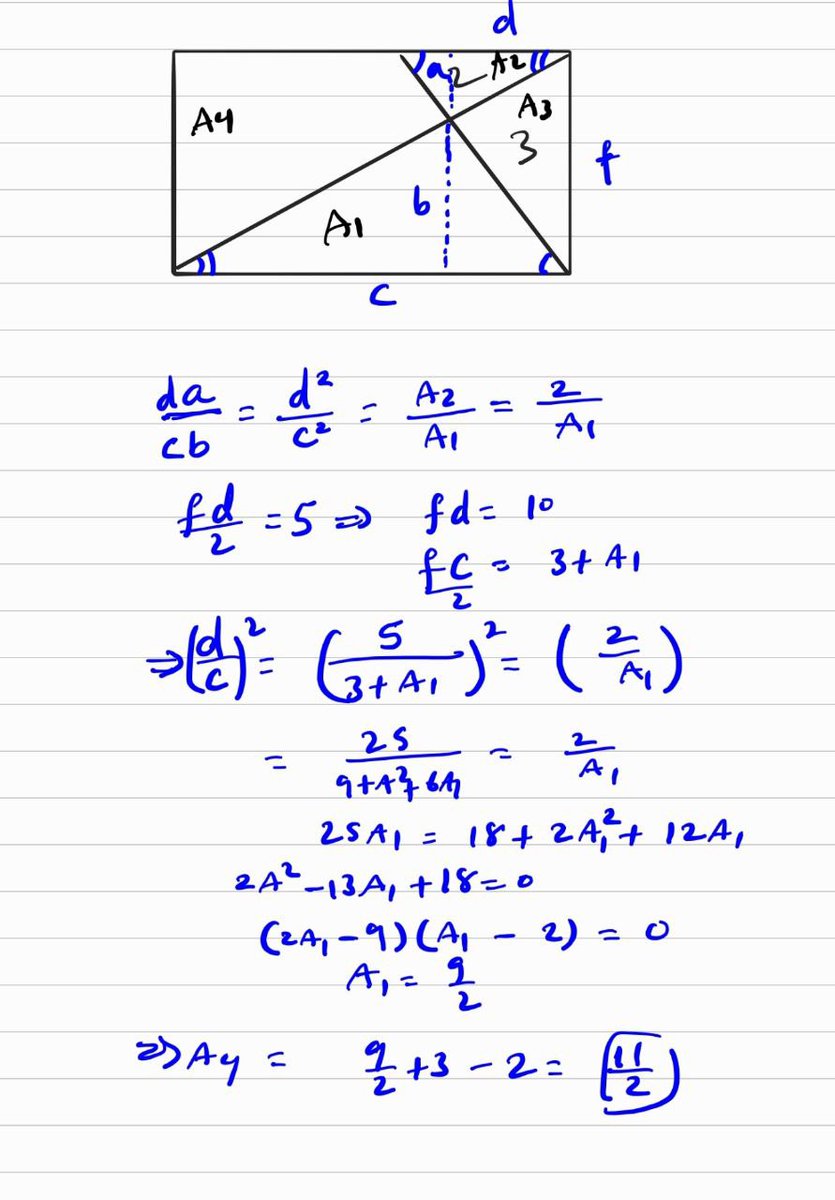 d
a 2 A2
A4 A3
3 f
b
A1
c
da/cb = d²/c² = A2/A1 = 2/A1
fd/2 = 5 ⇒ fd = 10
fc/2 = 3 + A1
⇒ (d/c)² = (5/(3+A1))² = (2/A1)
= 25/(9+A1²+6A1) = 2/A1
25A1 = 18 + 2A1² + 12A1
2A² - 13A1 + 18 = 0
(2A1 - 9)(A1 - 2) = 0
A1 = 9/2
⇒ A4 = 9/2 + 3 - 2 = 11/2